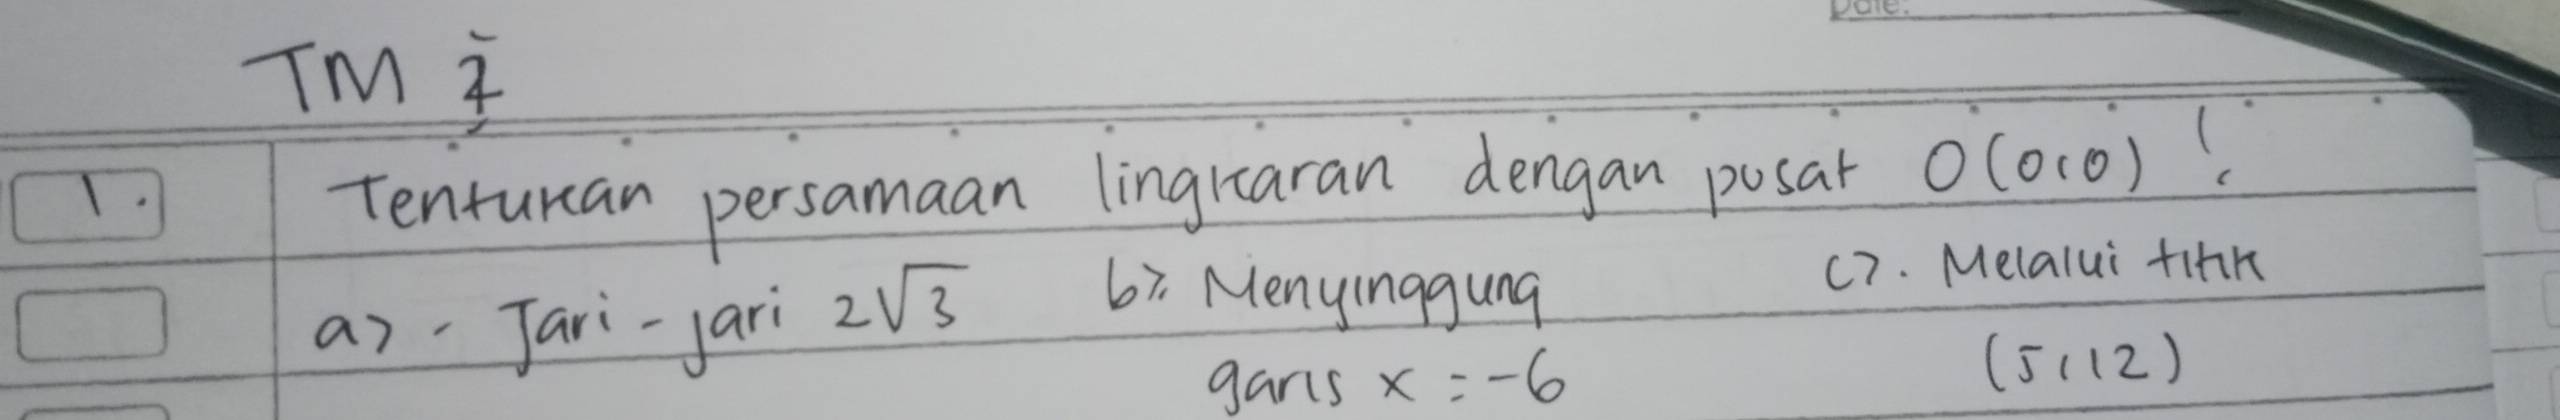 Date:
TM
1. Tentukan persamaan lingkaran dengan pusat O(0,0)!
a). Jari-jari 2√3 b). Menyinggung c). Melalui titik
garis x = -6 (5,12)